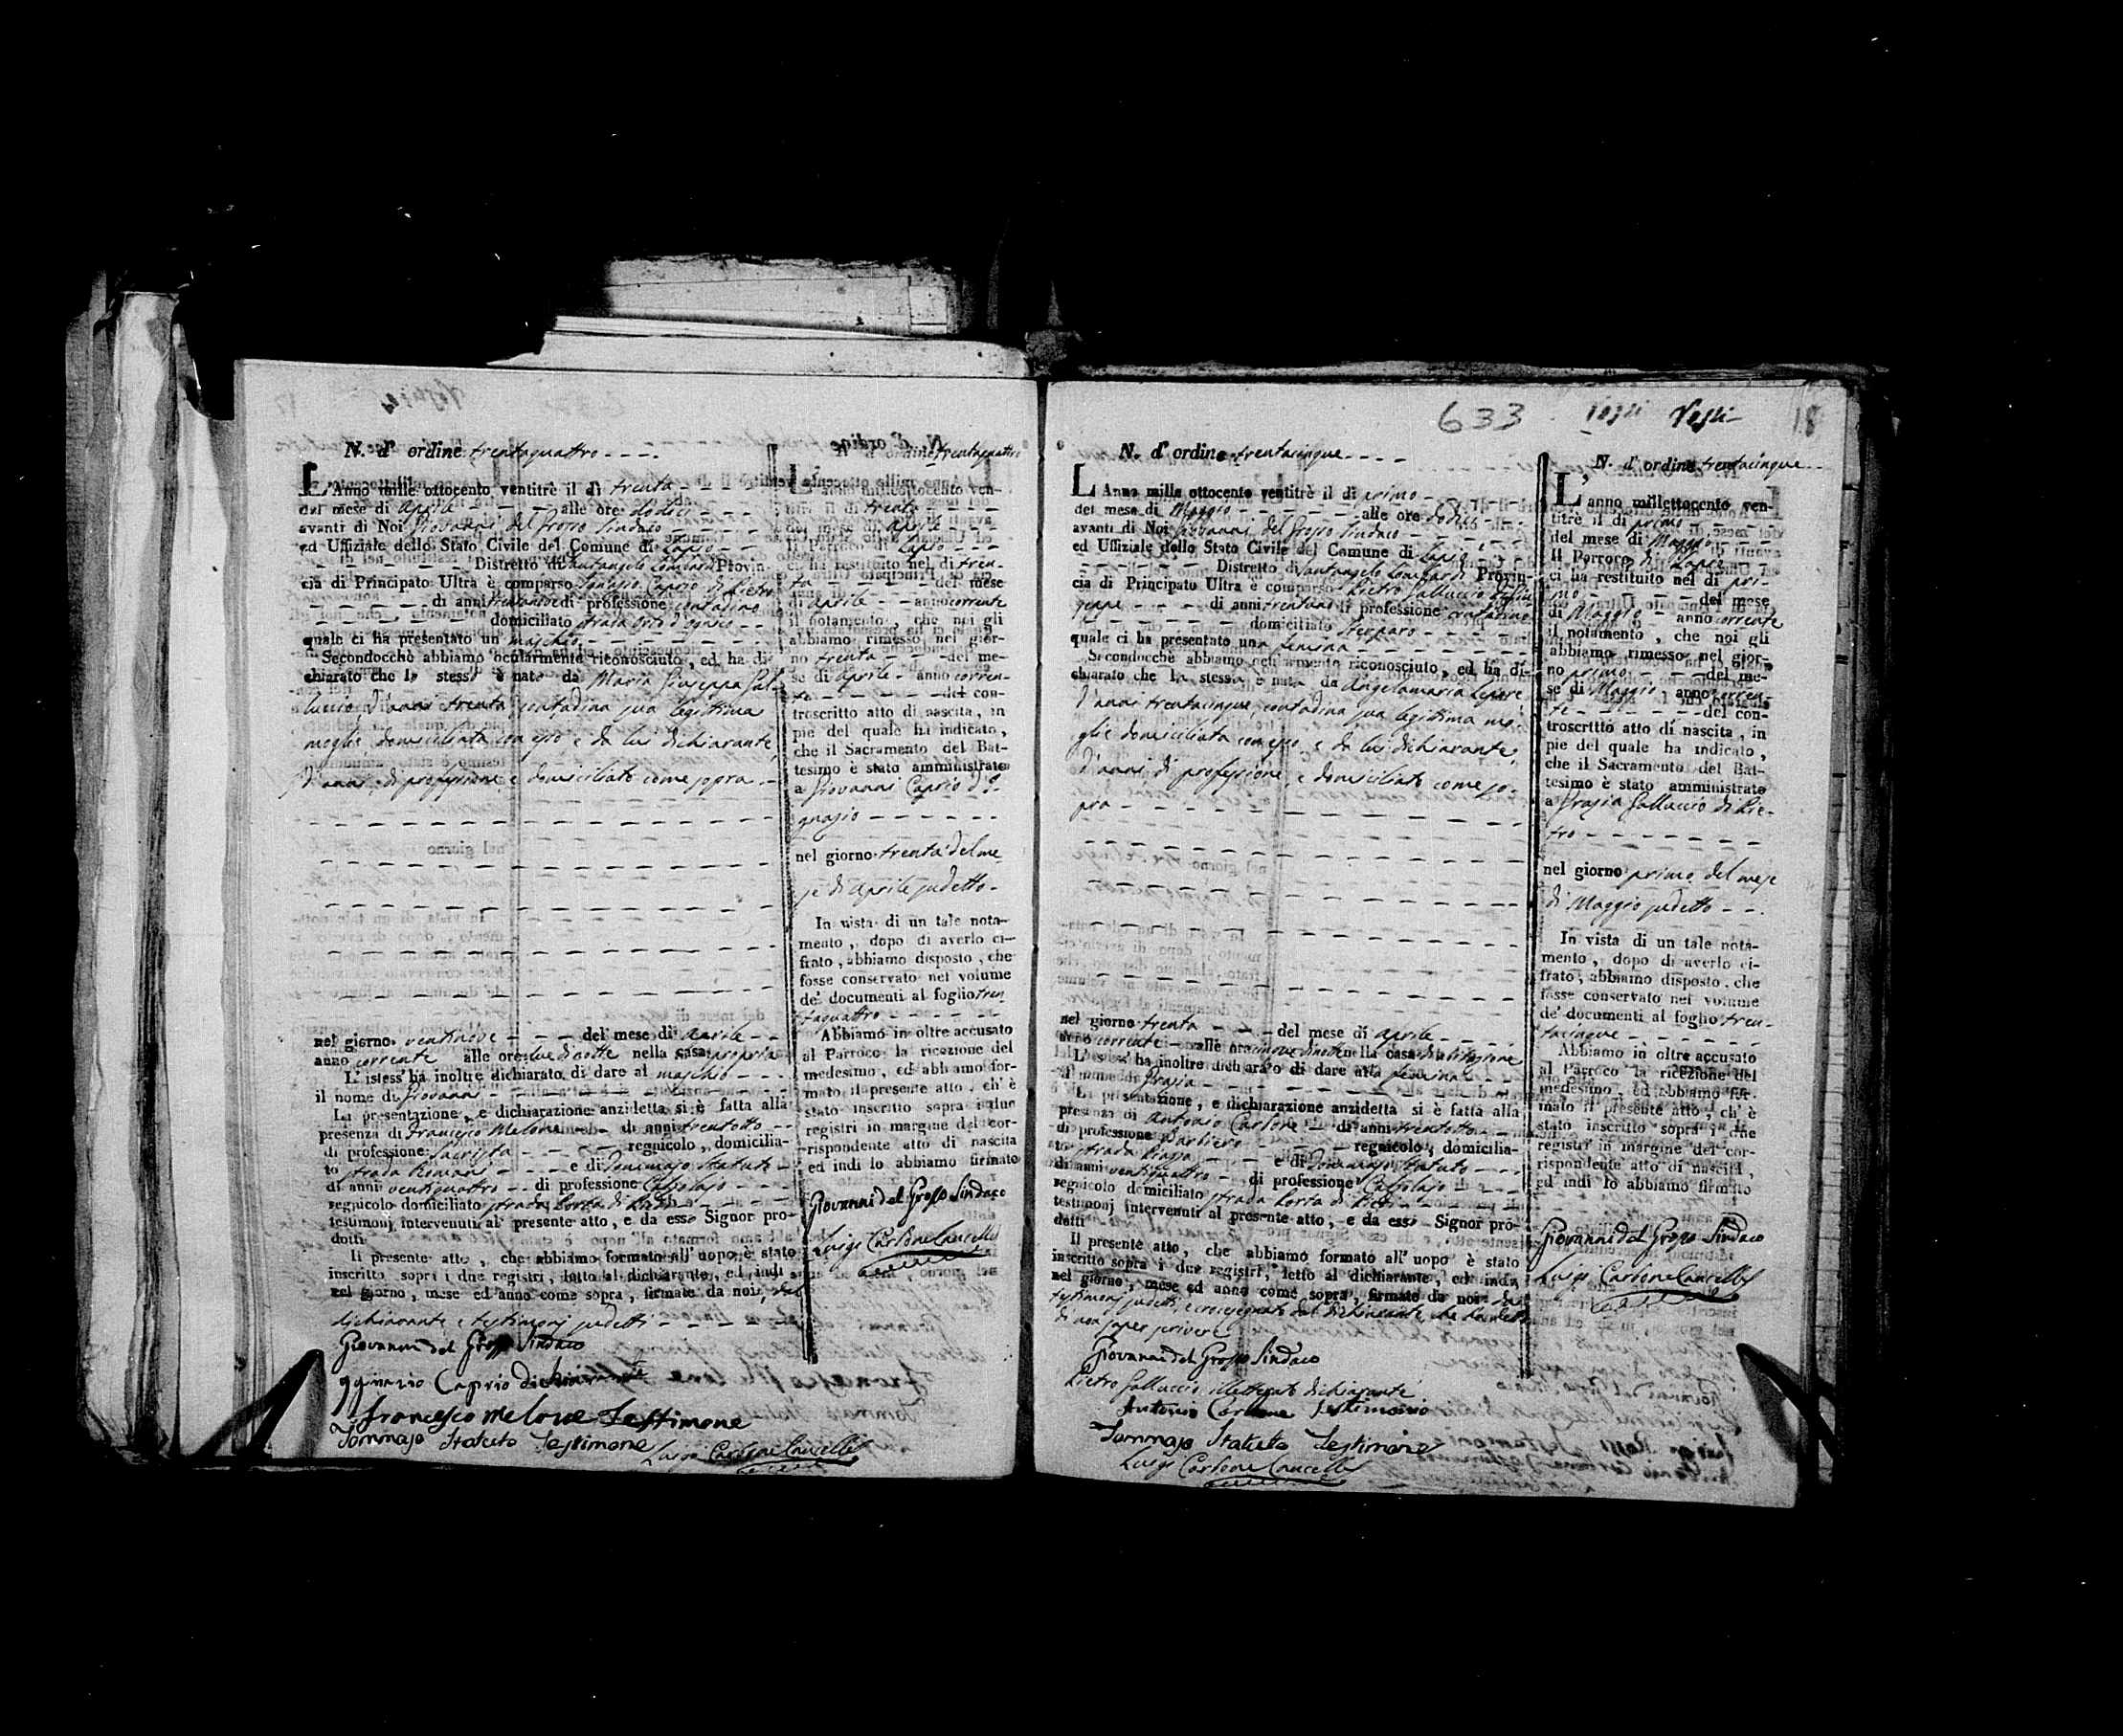 N. d' ordine trentaquattro
L'Anno mille ottocento ventitrè il dì trenta
del mese di Aprile alle ore dodici
avanti di Noi Giovanni del Grosso Sindaco
ed Uffiziale dello Stato Civile del Comune di Lapio
Distretto di Santangelo Lombardi Provin-
cia di Principato Ultra è comparso Ignazio Caprio di Pietro
di anni di professione contadino
domiciliato strada
quale ci ha presentato un maschio
Secondocchè abbiamo ocularmente riconosciuto, ed ha di-
chiarato che lo stesso è nato da Maria Giuseppa Gal-
luccio d'anni trenta contadina sua legittima
moglie domiciliata con esso, e da lui dichiarante,
d'anni, di professione, e domiciliato come sopra
nel giorno ventinove del mese di Aprile
anno corrente alle ore due di notte nella casa propria
L' istess' ha inoltre dichiarato di dare al maschio
il nome di Giovanni
La presentazione, e dichiarazione anzidetta si è fatta alla
presenza di Francesco Melone di anni trentotto
di professione Sacrista regnicolo, domicilia-
to strada e di Tommaso Statuto
di anni ventiquattro di professione Calzolajo
regnicolo domiciliato strada Porta di
testimonj intervenuti al presente atto, e da esso Signor pro-
dotti
Il presente atto, che abbiamo formato all' uopo è stato
inscritto sopra i due registri, letto al dichiarante, ed indi
nel giorno, mese ed anno come sopra, firmato da noi, dal
dichiarante e testimonj sudetti
Giovanni del Grosso Sindaco
Caprio Dichiarante
Francesco Melone Testimone
Tommaso Statuto Testimone
Luigi Carbone Cancell
N. d' ordine trentaquattro
L' anno millettocento ven-
titrè il dì trenta
del mese di Aprile
Il Parroco di Lapio
ci ha restituito nel dì tren-
ta del mese
di Aprile anno corrente
il notamento, che noi gli
abbiamo rimesso nel gior-
no trenta del me-
se di Aprile anno corren-
te del con-
troscritto atto di nascita, in
pie del quale ha indicato,
che il Sacramento del Bat-
tesimo è stato amministrato
a Giovanni Caprio d' I-
gnazio
nel giorno trenta del me
se di Aprile sudetto
In vista di un tale nota-
mento, dopo di averlo ci-
frato, abbiamo disposto, che
fosse conservato nel volume
de' documenti al foglio tren
taquattro
Abbiamo in oltre accusato
al Parroco la ricezione del
medesimo, ed abbiamo for-
mato il presente atto, ch' è
stato inscritto sopra i due
registri in margine del cor-
rispondente atto di nascita
ed indi lo abbiamo firmato
Giovanni del Grosso Sindaco
Luigi Carbone Cancell
633 18
N. d' ordine trentacinque
L' Anno mille ottocento ventitrè il dì primo
del mese di Maggio alle ore dodici
avanti di Noi Giovanni del Grosso Sindaco
ed Uffiziale dello Stato Civile del Comune di Lapio
Distretto di Santangelo Lombardi Provin-
cia di Principato Ultra è comparso Pietro Galluccio di Giu
seppe di anni di professione contadino
domiciliato
quale ci ha presentato una femina
Secondocchè abbiamo ocularmente riconosciuto, ed ha di-
chiarato che la stessa è nata da Angelamaria Lepore
d'anni trentacinque, contadina sua legittima mo-
glie domiciliata con esso, e da lui dichiarante,
d'anni di professione, e domiciliato come so-
pra
nel giorno trenta del mese di Aprile
anno corrente alle ore di notte nella casa di abitazione
L' istess' ha inoltre dichiarato di dare alla femina
il nome di Grazia
La presentazione, e dichiarazione anzidetta si è fatta alla
presenza di Antonio Carbone di anni trentotto
di professione Barbiero regnicolo, domicilia-
to strada e di Tommaso Statuto
di anni ventiquattro di professione Calzolajo
regnicolo domiciliato strada Porta di
testimonj intervenuti al presente atto, e da esso Signor pro-
dotti
Il presente atto, che abbiamo formato all' uopo è stato
inscritto sopra i due registri, letto al dichiarante, ed indi
nel giorno, mese ed anno come sopra, firmato da noi da
testimonj sudetti, e crocesegnato dal dichiarante, che ha detto
di non saper scrivere
Giovanni del Grosso Sindaco
Pietro Galluccio illetterato dichiarante
Antonio Carbone Testimonio
Tommaso Statuto Testimone
Luigi Carbone Cancell
N. d' ordine trentacinque
L' anno millettocento ven-
titrè il dì primo
del mese di Maggio
Il Parroco di Lapio
ci ha restituito nel dì pri-
mo del mese
di Maggio anno corrente
il notamento, che noi gli
abbiamo rimesso nel gior-
no primo del me-
se di Maggio anno corren-
te del con-
troscritto atto di nascita, in
pie del quale ha indicato,
che il Sacramento del Bat-
tesimo è stato amministrato
a Grazia Galluccio di Pie-
tro
nel giorno primo del mese
di Maggio sudetto
In vista di un tale nota-
mento, dopo di averlo ci-
frato, abbiamo disposto, che
fosse conservato nel volume
de' documenti al foglio tren-
tacinque
Abbiamo in oltre accusato
al Parroco la ricezione del
medesimo, ed abbiamo for-
mato il presente atto, ch' è
stato inscritto sopra i due
registri in margine del cor-
rispondente atto di nascita,
ed indi lo abbiamo firmato
Giovanni del Grosso Sindaco
Luigi Carbone Cancell